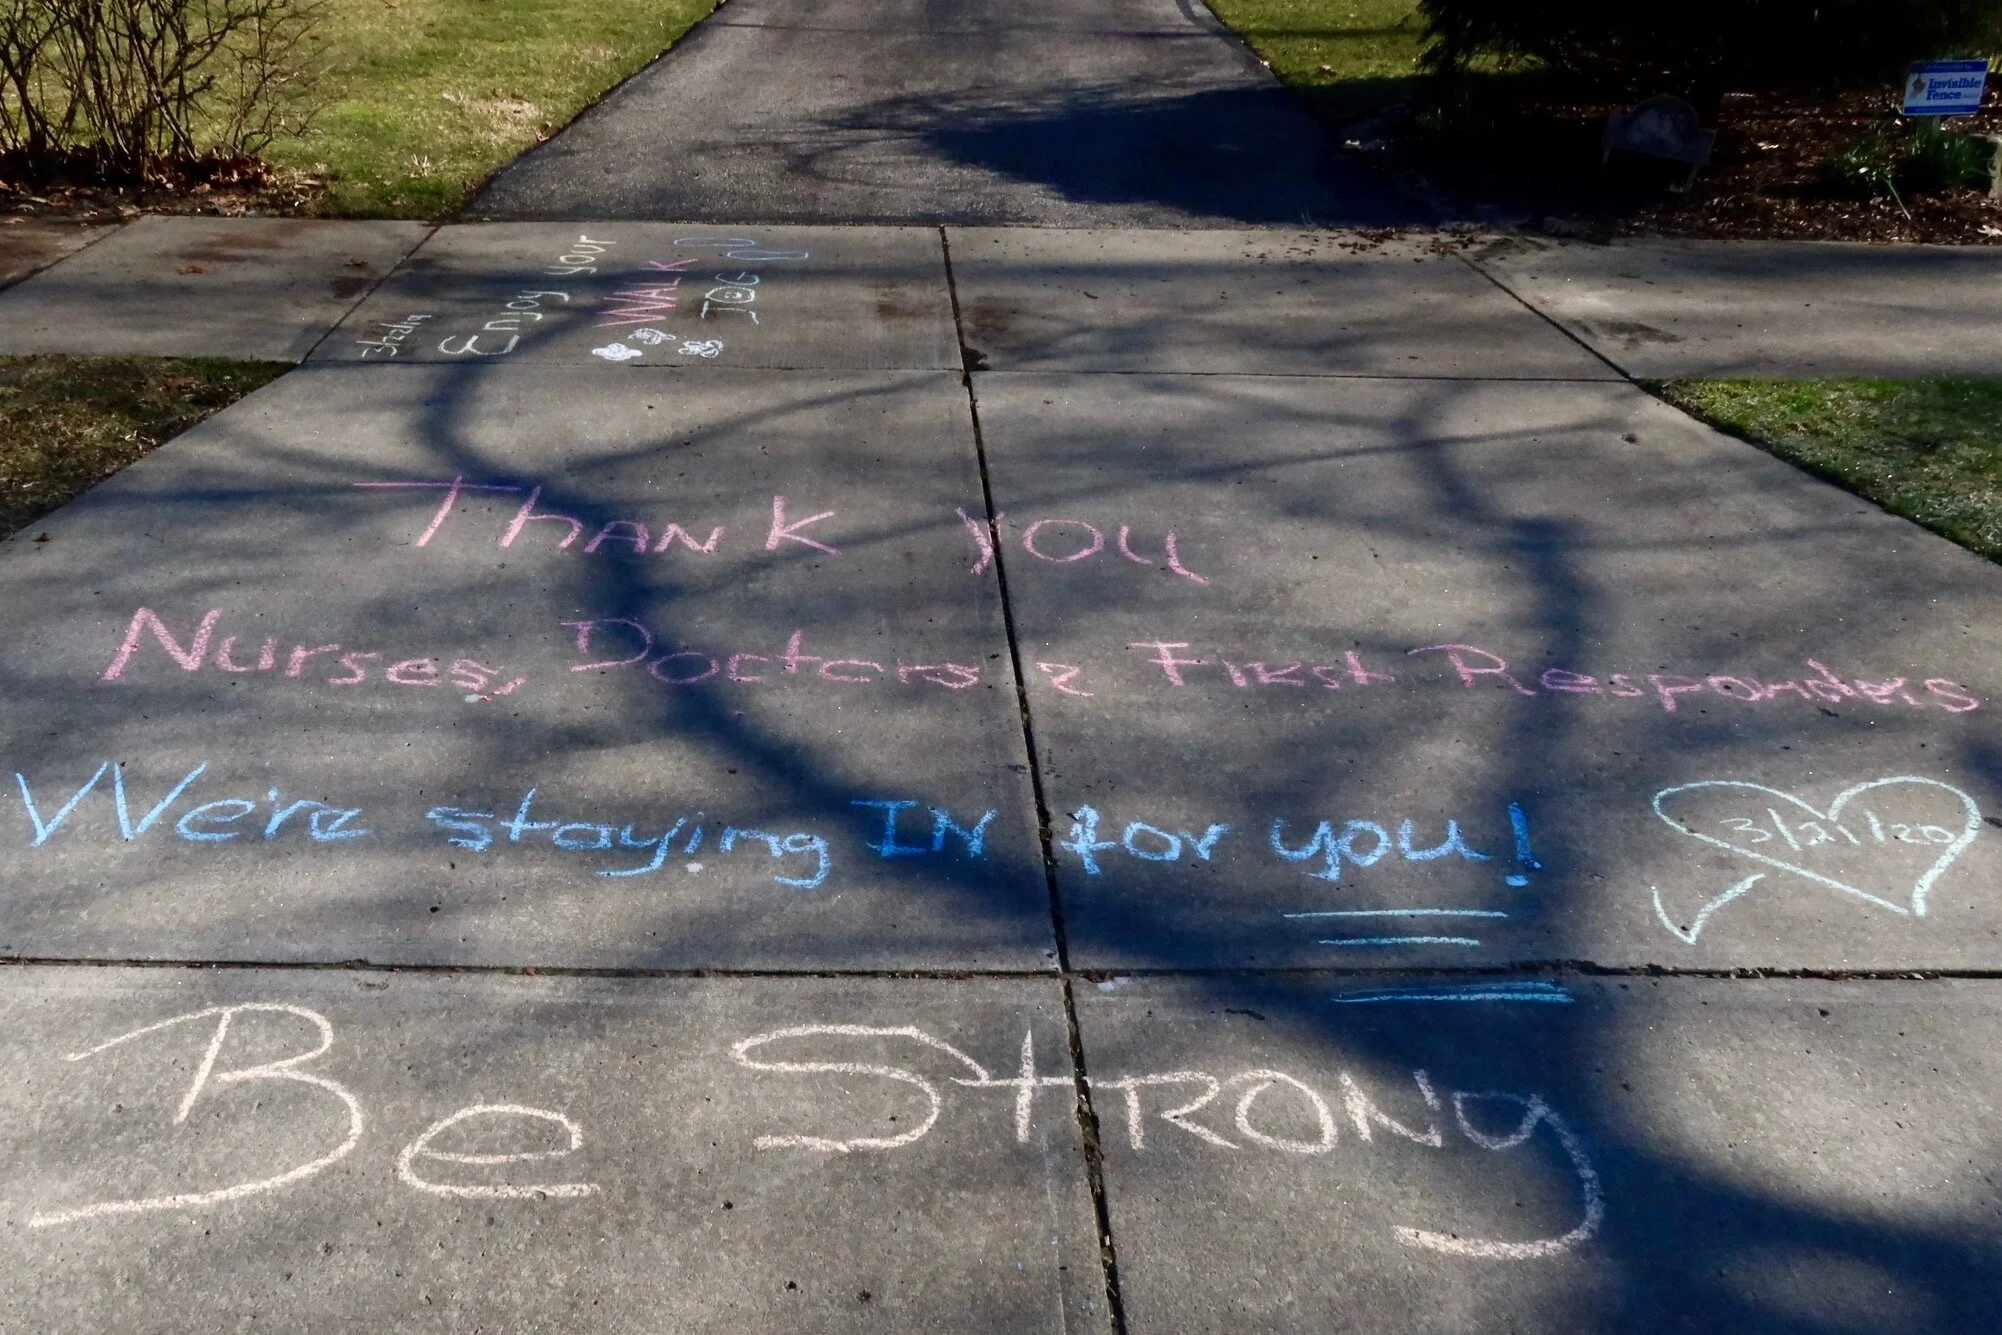 Invisible
Fence
3/22/19
Enjoy your
WALK
JOG
Thank you
Nurses, Doctors & First Responders
We're staying IN for you!
3/21/20
Be Strong